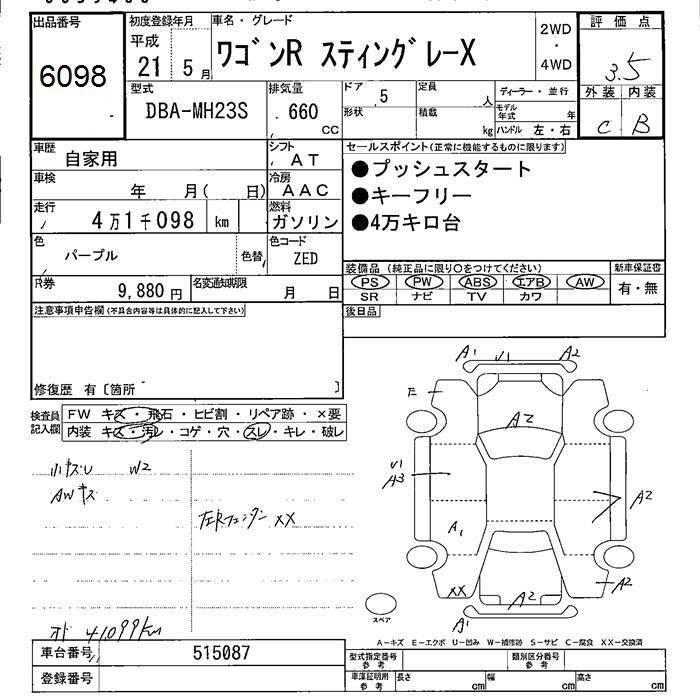 出品番号
6098
初度登録年月
平成
21 5月
車名・グレード
ワゴンR スティングレーX
2WD
・
4WD
評価点
3.5
外装 内装
C B
型式
DBA-MH23S
排気量
660
CC
ドア 5
形状
定員
人
積載
kg
ディーラー・並行
モデル年式 年
ハンドル 左・右
車歴
自家用
シフト
AT
車検
年 月( 日)
冷房
AAC
走行
4万1千098 km
燃料
ガソリン
色
パープル
色替
色コード
ZED
R券
9,880円
名変通知期限
月 日
セールスポイント(正常に機能するものに限ります)
●プッシュスタート
●キーフリー
●4万キロ台
装備品(純正品に限り○をつけてください)
PS PW ABS エアB AW
SR ナビ TV カワ
新車保証書
有・無
後日品
注意事項申告欄(不具合内容等は具体的に記入して下さい)
修復歴 有〔箇所 〕
検査員
記入欄
FW キズ・飛石・ヒビ割・リペア跡・×要
内装 キズ・汚レ・コゲ・穴・スレ・キレ・破レ
小キズU W2
AWキズ
左Rフェンダー XX
オド 41,099km
A1 V1 A2
E
A2
V1
A3
A2
A1
XX
A2
A2
A1
スペア
A−キズ E−エクボ U−凹み W−補修跡 S−サビ C−腐食 XX−交換済
車台番号
515087
登録番号
型式指定番号
参考
類別区分番号
参考
車庫証明用
参考
長さ cm
幅 cm
高さ cm